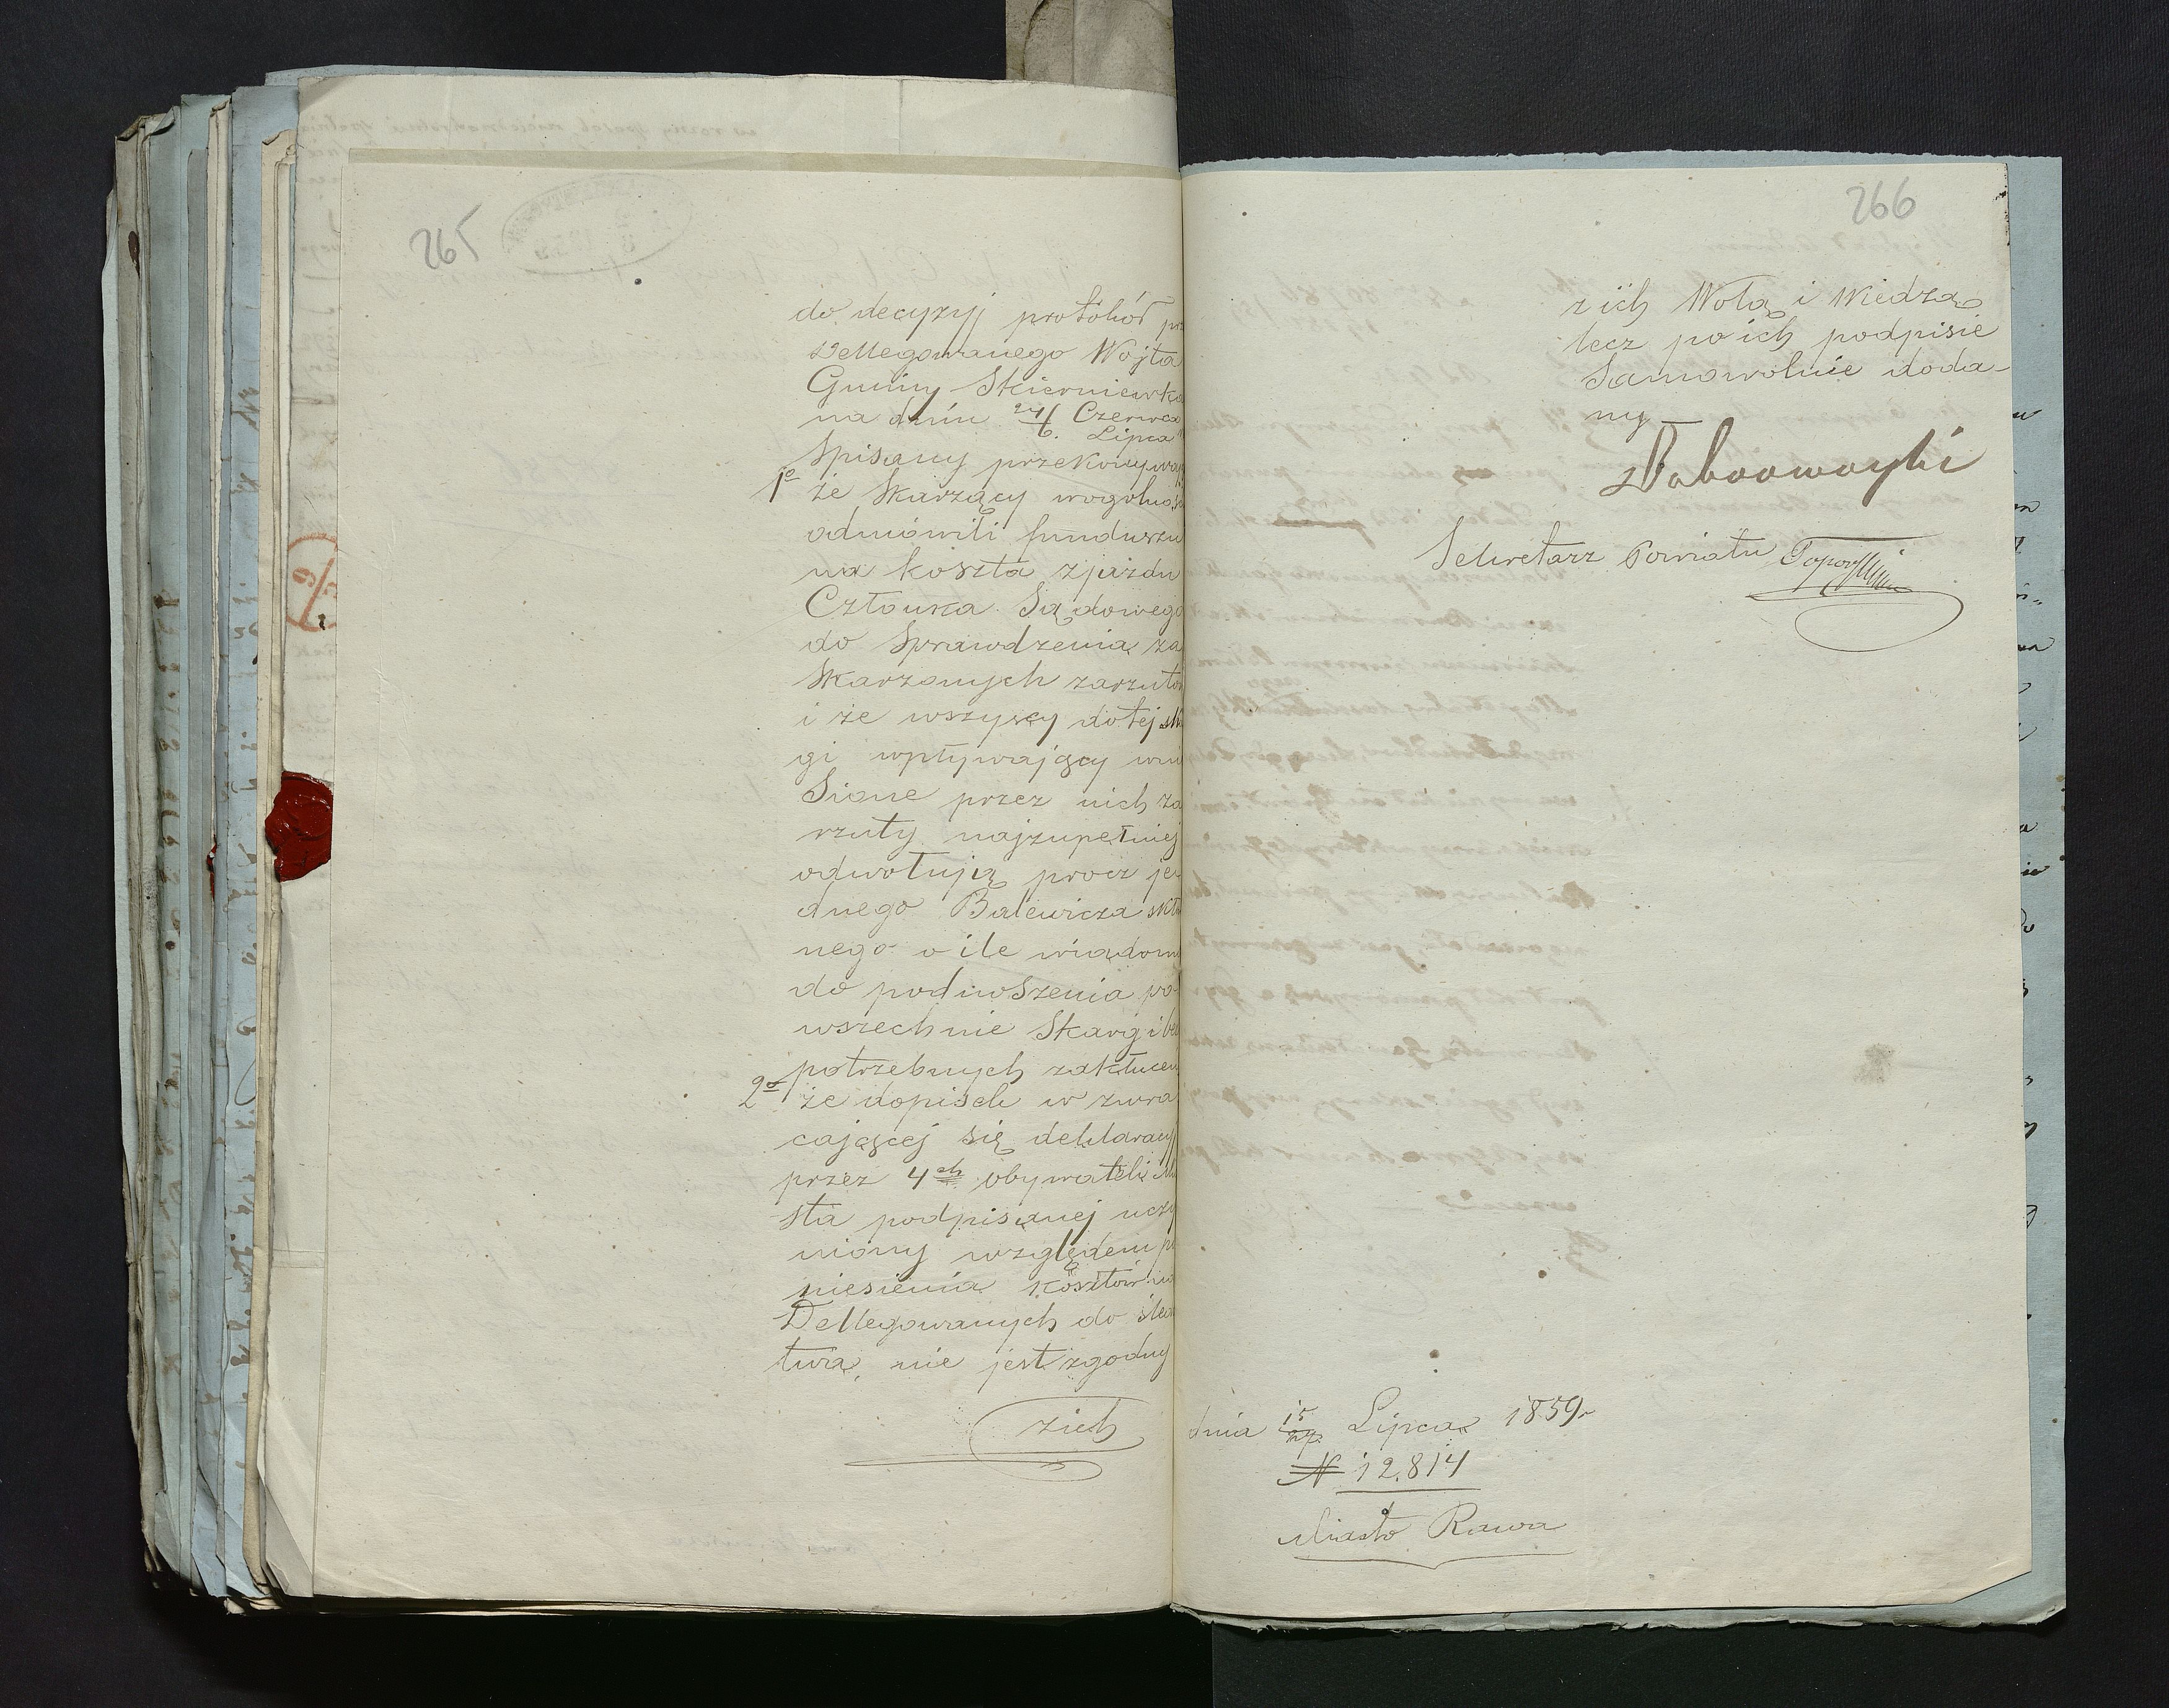 265
do decyzyj protokół prz
Dellegowanego Wojta
Gminy Skierniewka
na dniu 24/6. Czerwca Lipca
Spisany przekonywa
1o że Skarżący wogolnoś
odmówili funduszu
na koszta zjazdu
Członka Sądowego
do Sprawdzenia za
Skarżonych zarzutów
i że wszyscy do tej ska
gi wpływający wnie
Sione przez nich za
rzuty najzupełniej
odwołują procz je
dnego Balewicza skło
nego o ile wiadom
do podnoszenia po
wszechnie Skarg i be
potrzebnych zakłuceń
2o że dopisek w zwra
cającej się deklaracyi
przez 4ch obywateli Mia
sta podpisanej uczy
niony względem po
niesienia kosztów
Dellegowanych do śledz
twa, nie jest zgodny
zich
266
z iich Wolą i Wiedzą
lecz po ich podpisie
Samowolnie doda-
ny
Sekretarz Powiatu
dnia 15/27. Lipca 1859r
N 12.814
Miasto Rawa